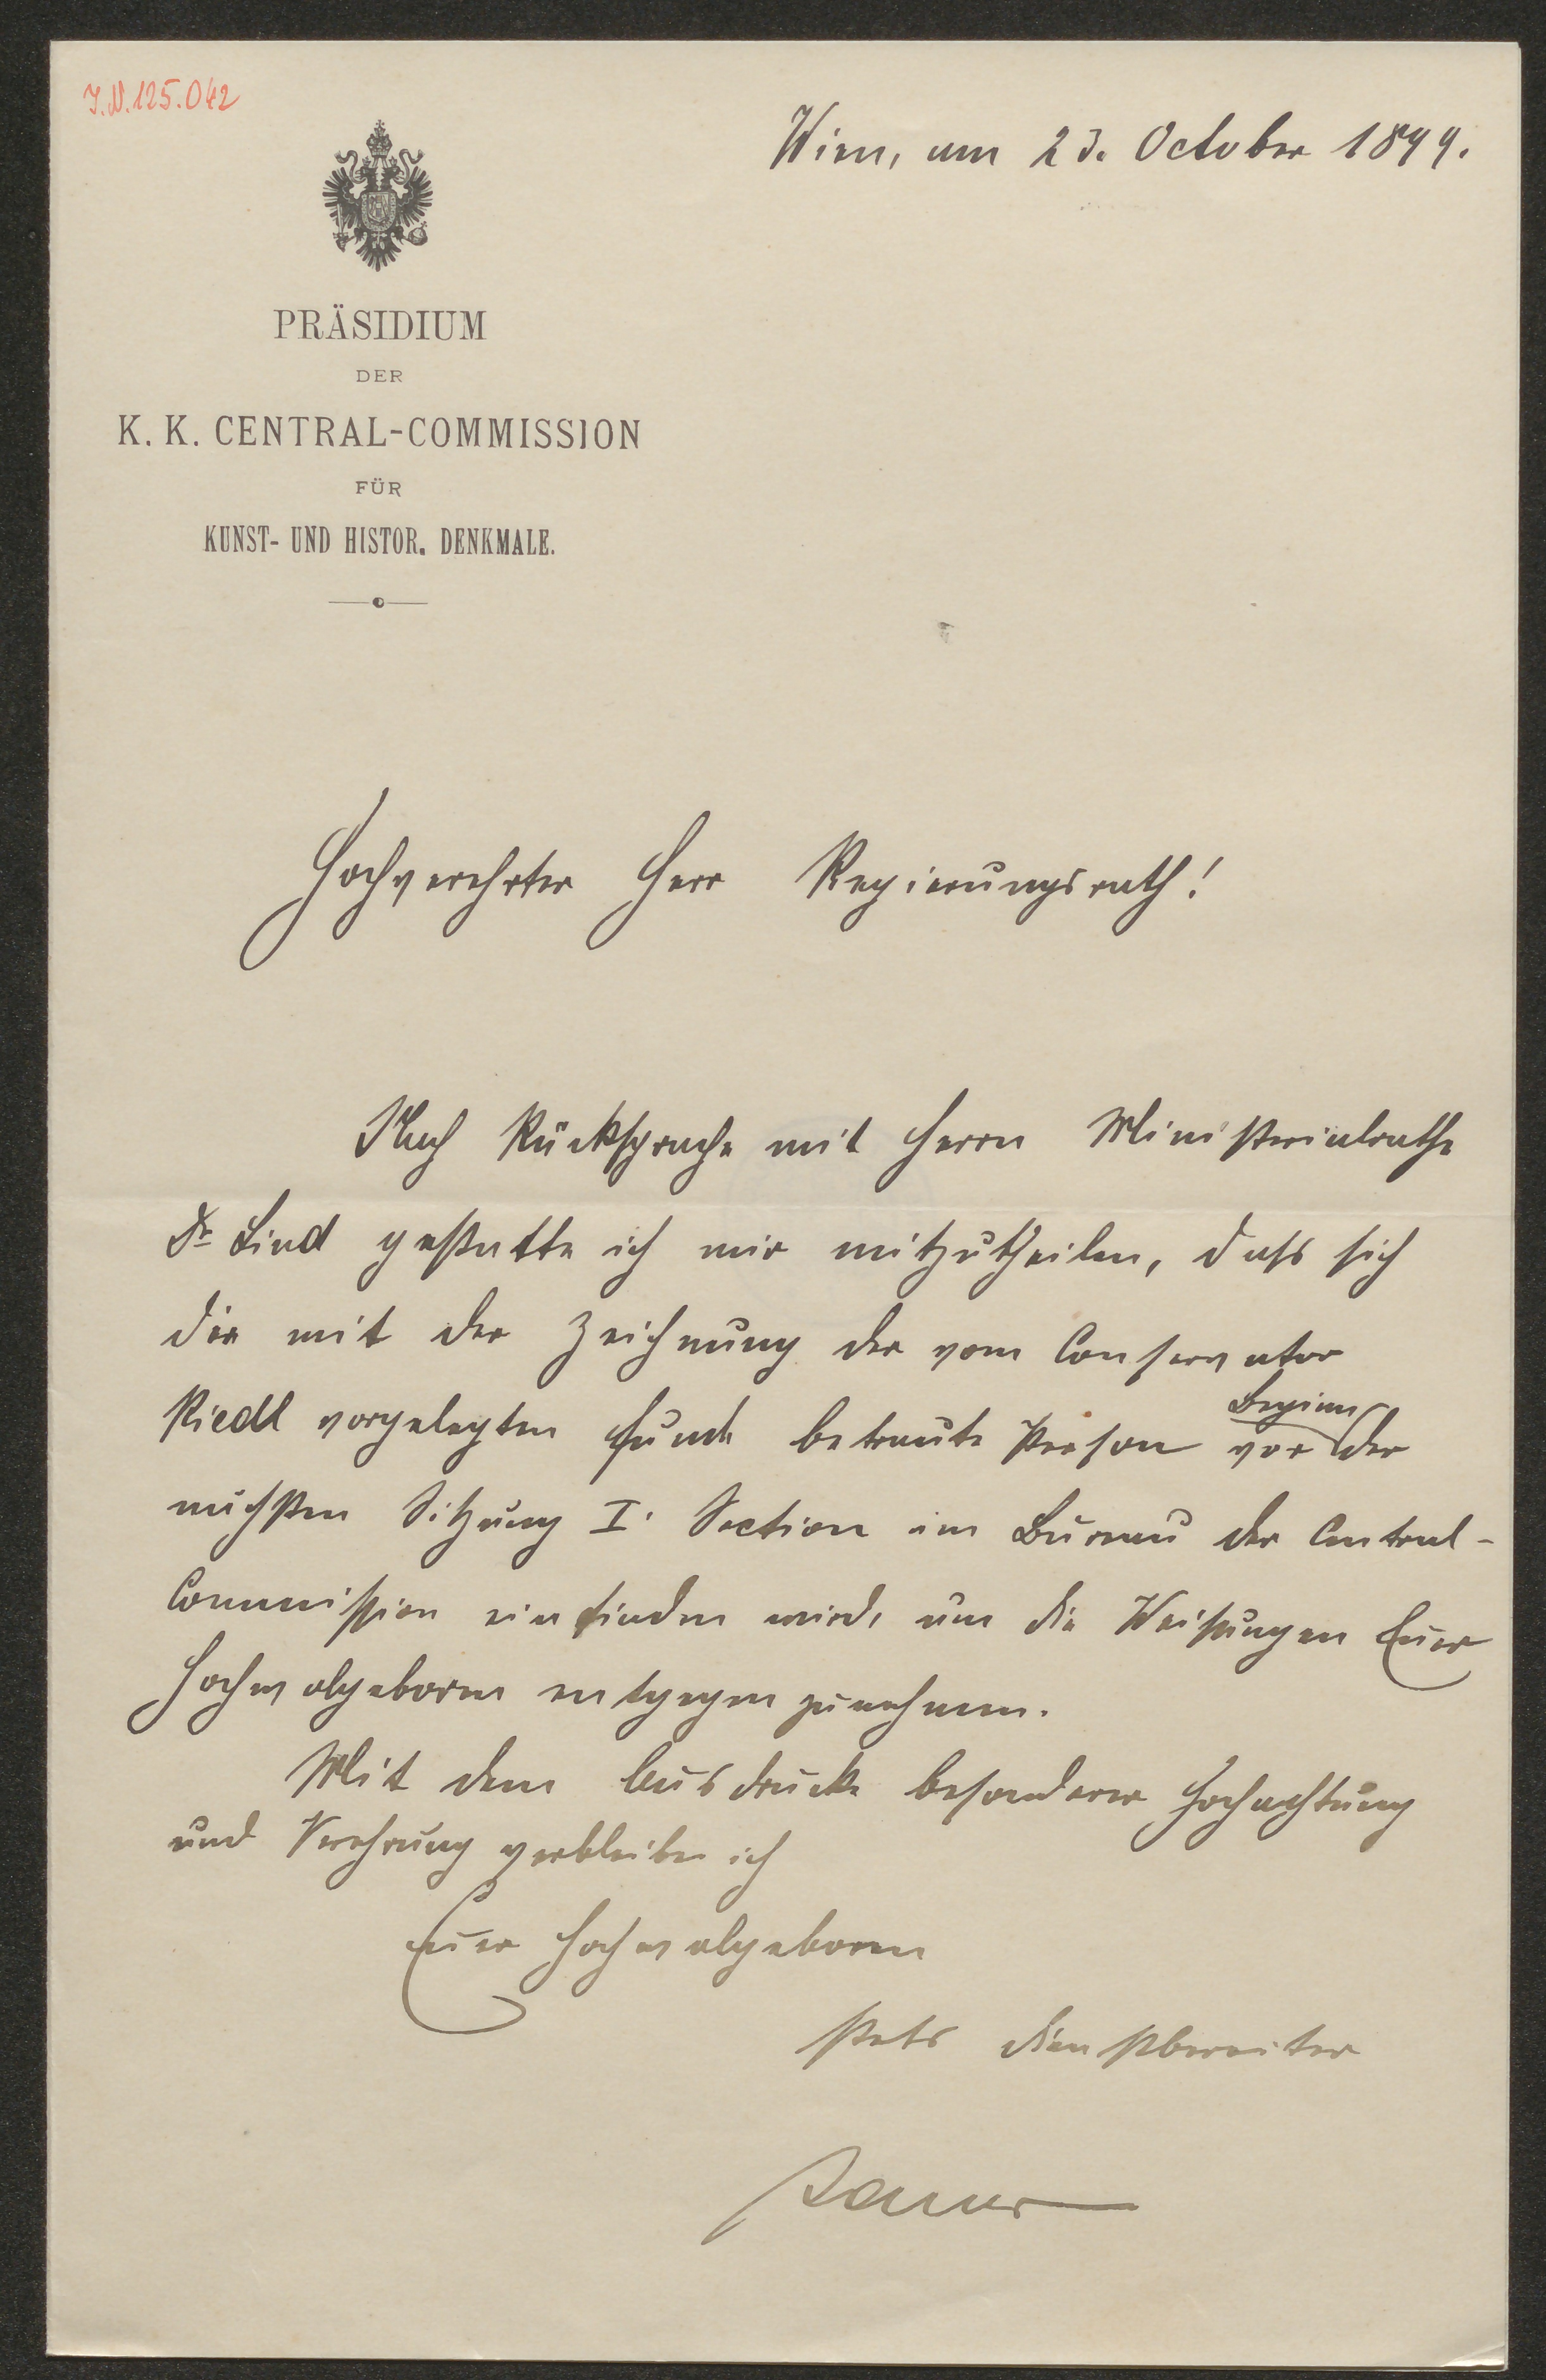 J.N. 125.042
Wien, am 23. October 1899.
PRÄSIDIUM
DER
K. K. CENTRAL-COMMISSION
FÜR
KUNST- UND HISTOR. DENKMALE.
Hochverehrter Herr Regierungsrath!
Nach Rücksprache mit Herrn Ministerialrathe
Dr Lind gestatte ich mir mitzutheilen, dass sich
die mit der Zeichnung der vom Conservator
Beginn
Riedl vorgelegten Funde betraute Person vor der
nächsten Sitzung I. Section im Bureau der Central-
Commission einfinden wird, um die Weisungen Euer
Hochwolgeboren entgegen zu nehmen.
Mit dem Ausdrucke besonderer Hochachtung
und Verehrung verbleibe ich
Euer Hochwolgeboren
stets dienstbereiter